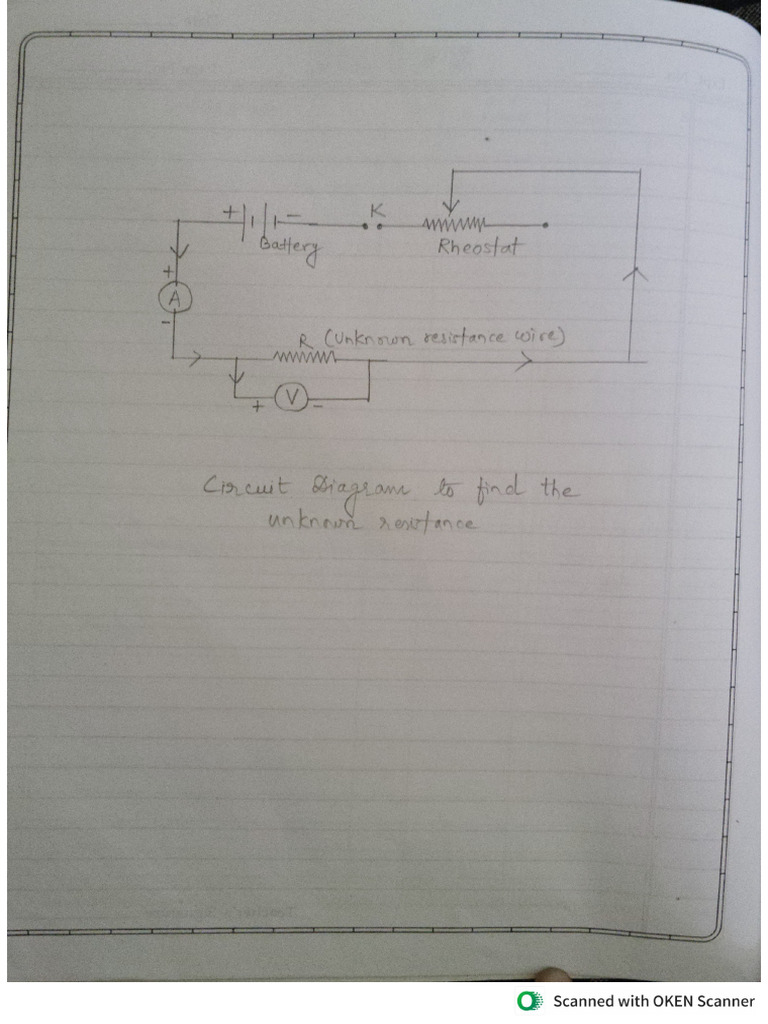 + −
K
Battery
Rheostat
+
A
−
R (Unknown resistance wire)
+ V −
Circuit Diagram to find the
unknown resistance
Scanned with OKEN Scanner